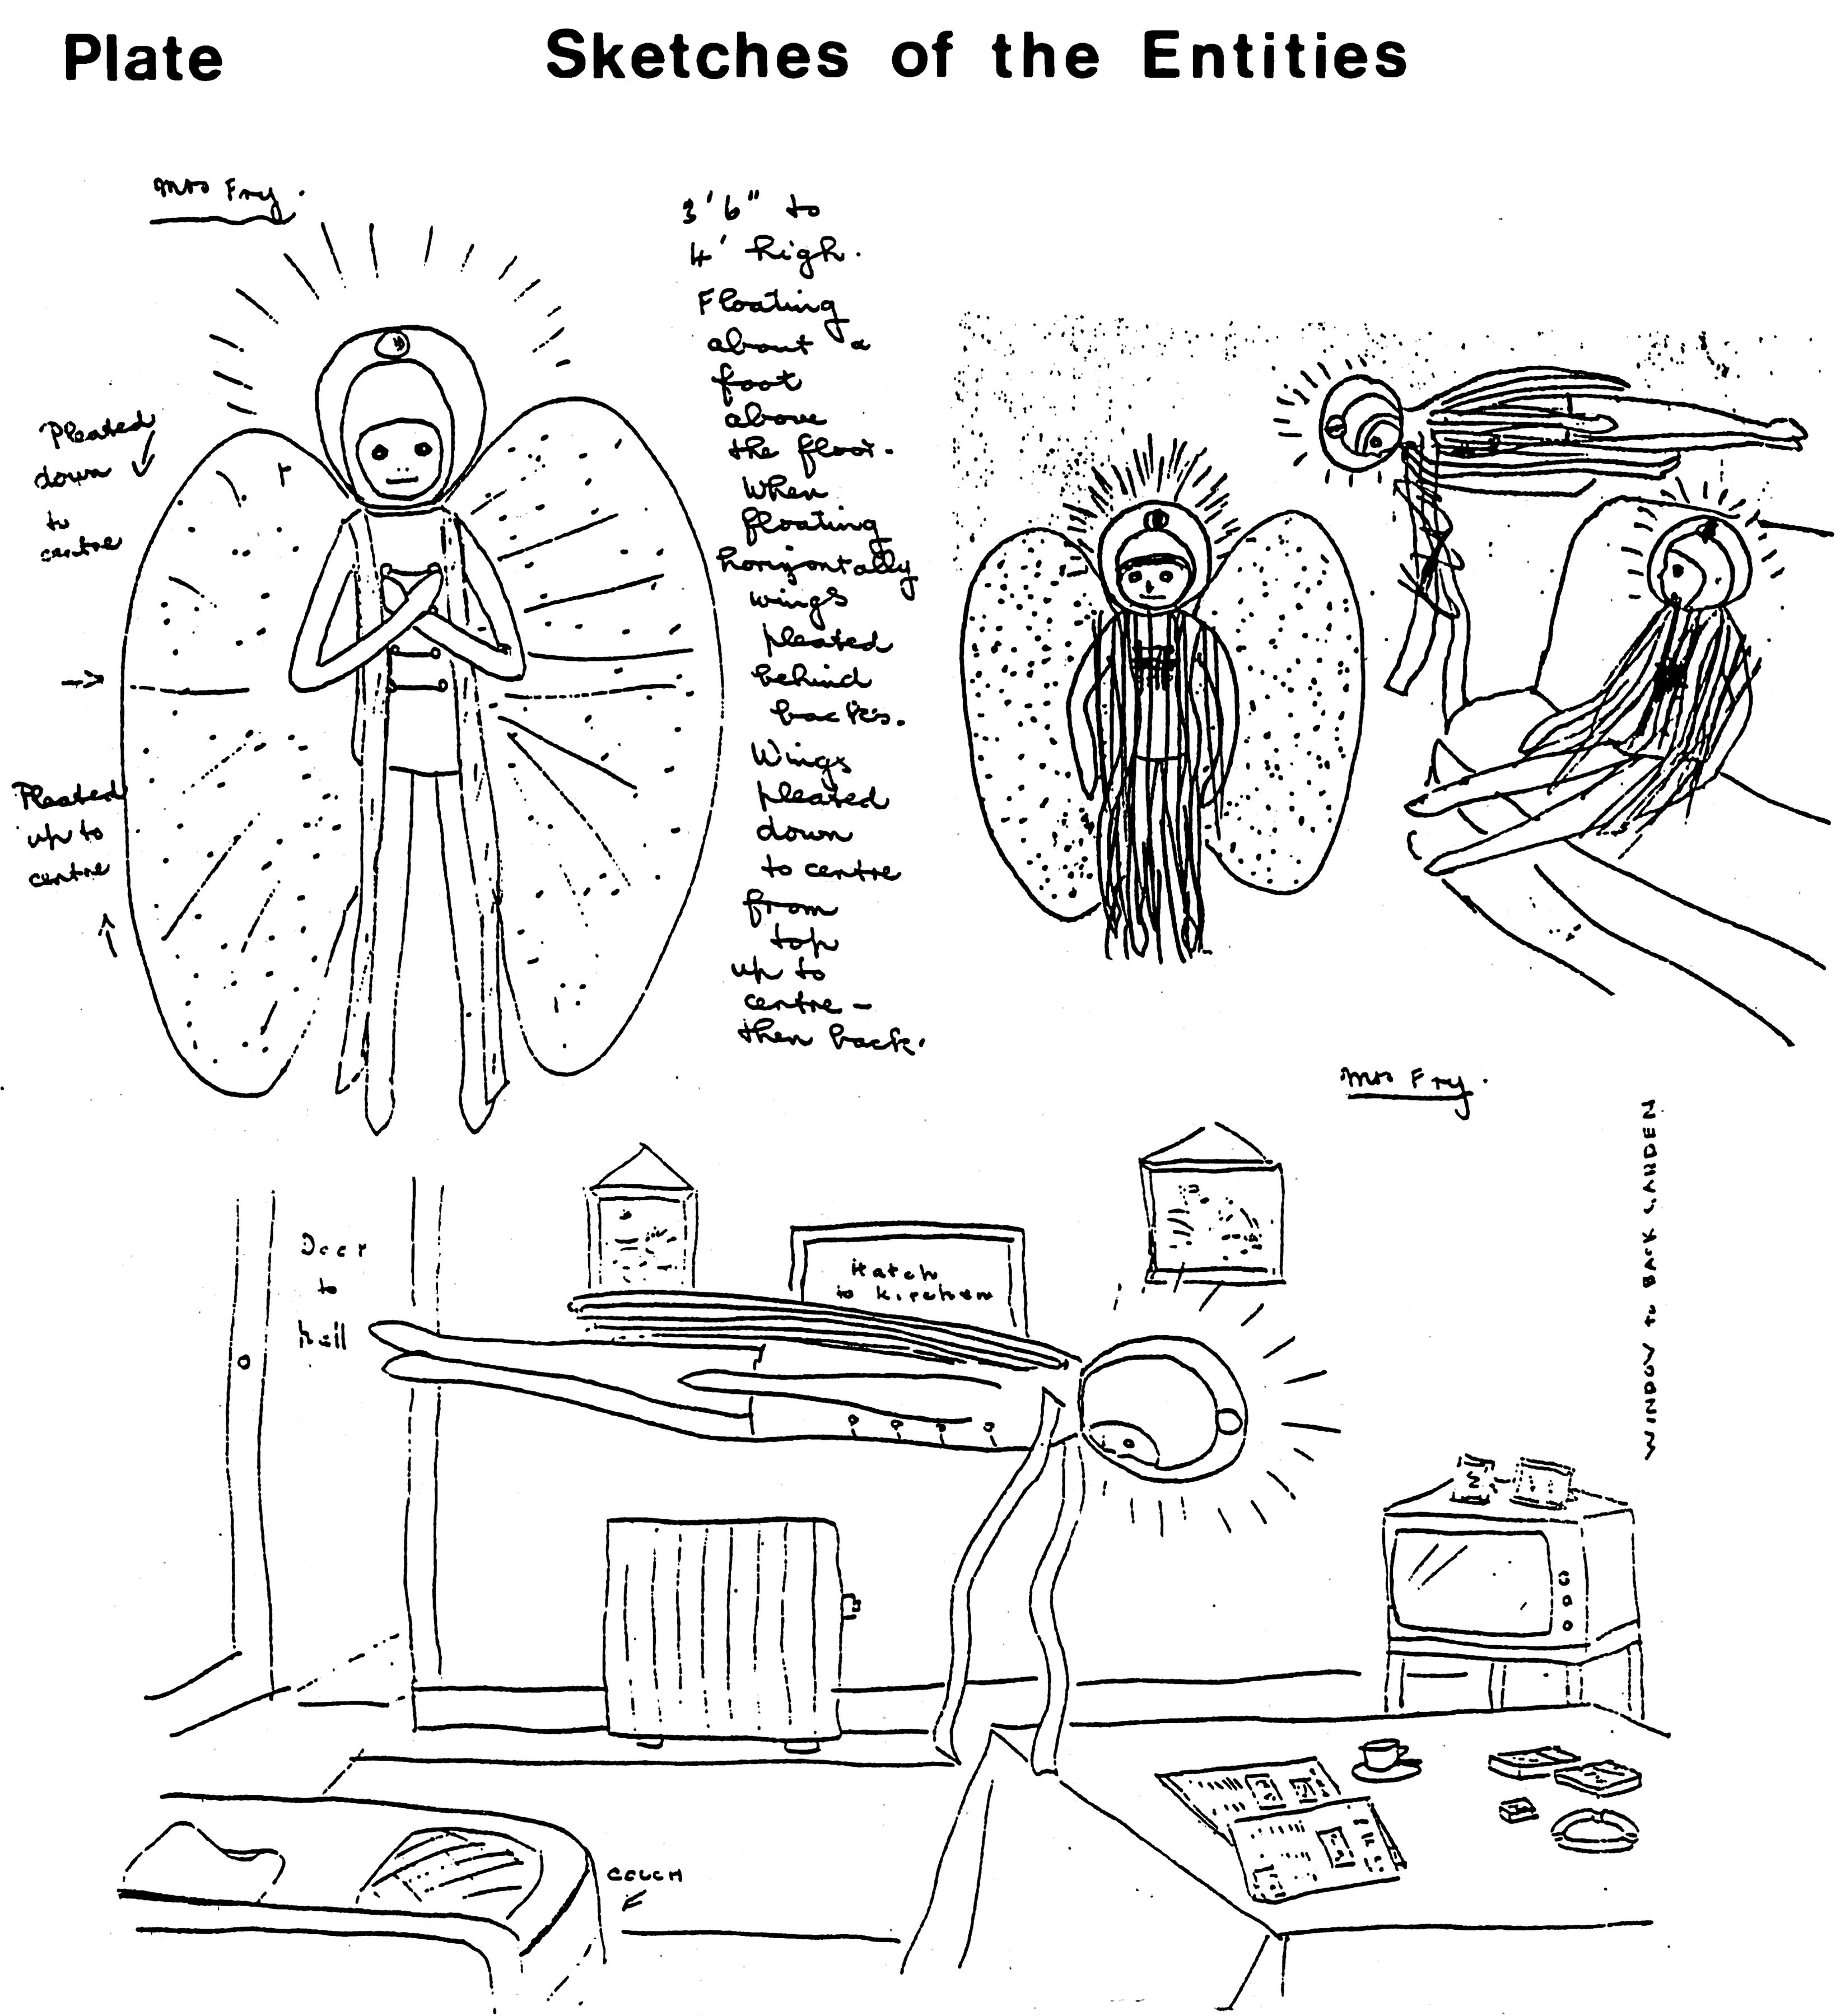 Plate
Sketches of the Entities
Mrs Fry.
3'6" to
4' high.
Floating
about a
foot
above
the floor.
When
floating
horizontally
wings
pleated
behind
backs.
Wings
pleated
down
to centre
from
top
up to
centre –
then back.
Pleated
down
to
centre
Pleated
up to
centre
Mrs Fry.
WINDOW TO BACK GARDEN
Door
to
hall
Hatch
to kitchen
COUCH